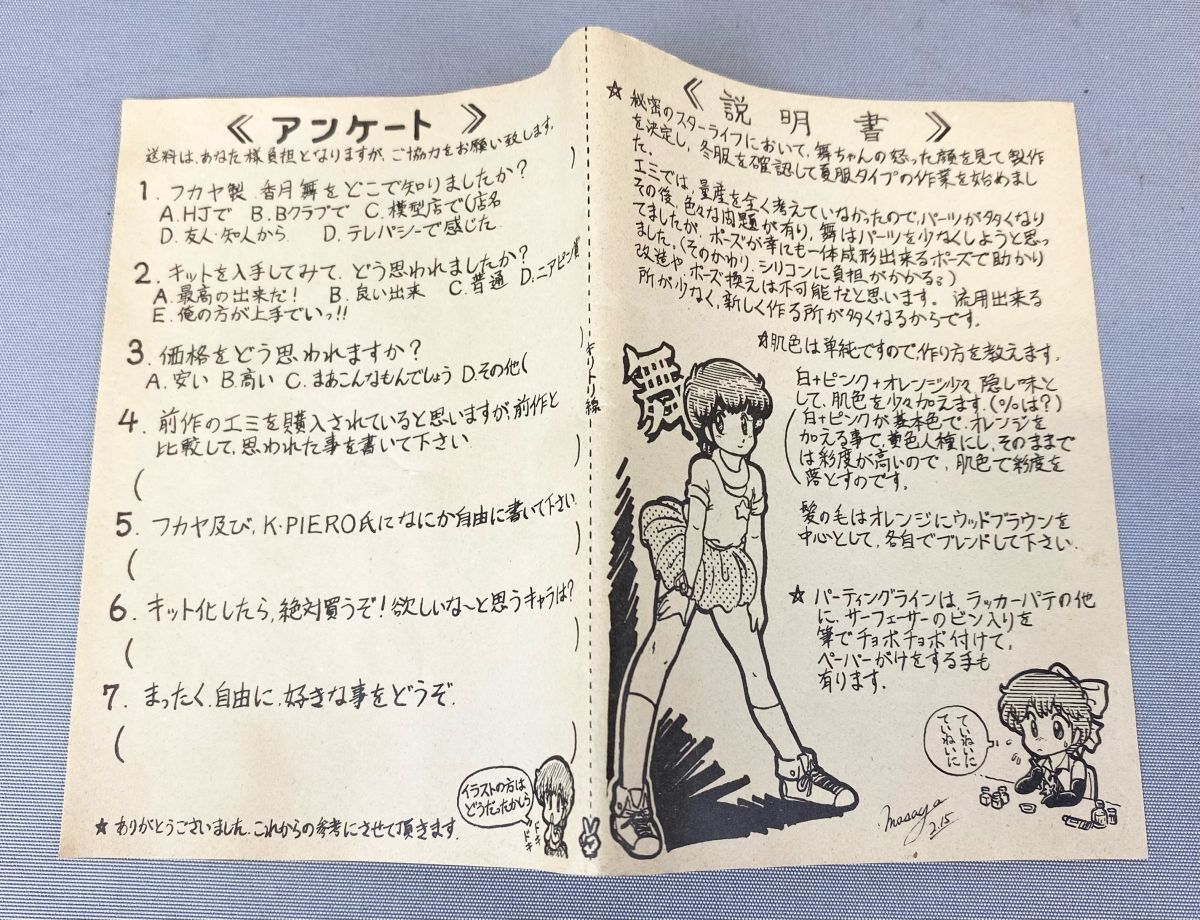 《アンケート》
送料は、あなた様負担となりますが、ご協力をお願い致します。
1. フカヤ製、香月舞をどこで知りましたか?
A. HJで B. Bクラブで C. 模型店で(店名 )
D. 友人・知人から D. テレパシーで感じた
2. キットを入手してみて、どう思われましたか?
A. 最高の出来だ! B. 良い出来 C. 普通 D. ニアピン賞
E. 俺の方が上手でいっ!!
3. 価格をどう思われますか?
A. 安い B. 高い C. まあこんなもんでしょう D. その他( )
4. 前作のエミを購入されていると思いますが、前作と
比較して、思われた事を書いて下さい
( )
5. フカヤ及び、K・PIERO氏になにか自由に書いて下さい
( )
6. キット化したら、絶対買うぞ!欲しいな〜と思うキャラは?
( )
7. まったく、自由に、好きな事をどうぞ。
( )
イラストの方は
どうだったかしら
ドキ
ドキ
☆ ありがとうございました。これからの参考にさせて頂きます。
キリトリ線
《説明書》
☆ 秘密のスターライフにおいて、舞ちゃんの怒った顔を見て製作
を決定し、冬服を確認して夏服タイプの作業を始めまし
た。
エミでは、量産を全く考えていなかったので、パーツが多くなり
その後、色々な問題が有り、舞はパーツを少なくしようと思っ
てましたが、ポーズが幸にも一体成形出来るポーズで助かり
ました。(そのかわり、シリコンに負担がかかる?)
改造や、ポーズ換えは不可能だと思います。流用出来る
所が少なく、新しく作る所が多くなるからです。
☆肌色は単純ですので、作り方を教えます。
白+ピンク+オレンジ少々、隠し味と
して、肌色を少々加えます。(%は?)
(白+ピンクが基本色で、オレンジを
加える事で、黄色人種にし、そのままで
は彩度が高いので、肌色で彩度を
落とすのです。
髪の毛はオレンジにウッドブラウンを
中心として、各自でブレンドして下さい。
舞
☆ パーティングラインは、ラッカーパテの他
に、サーフェーサーのビン入りを
筆でチョボチョボ付けて、
ペーパーがけをする手も
有ります。
ていねいに
ていねいに
Masaya
2.15